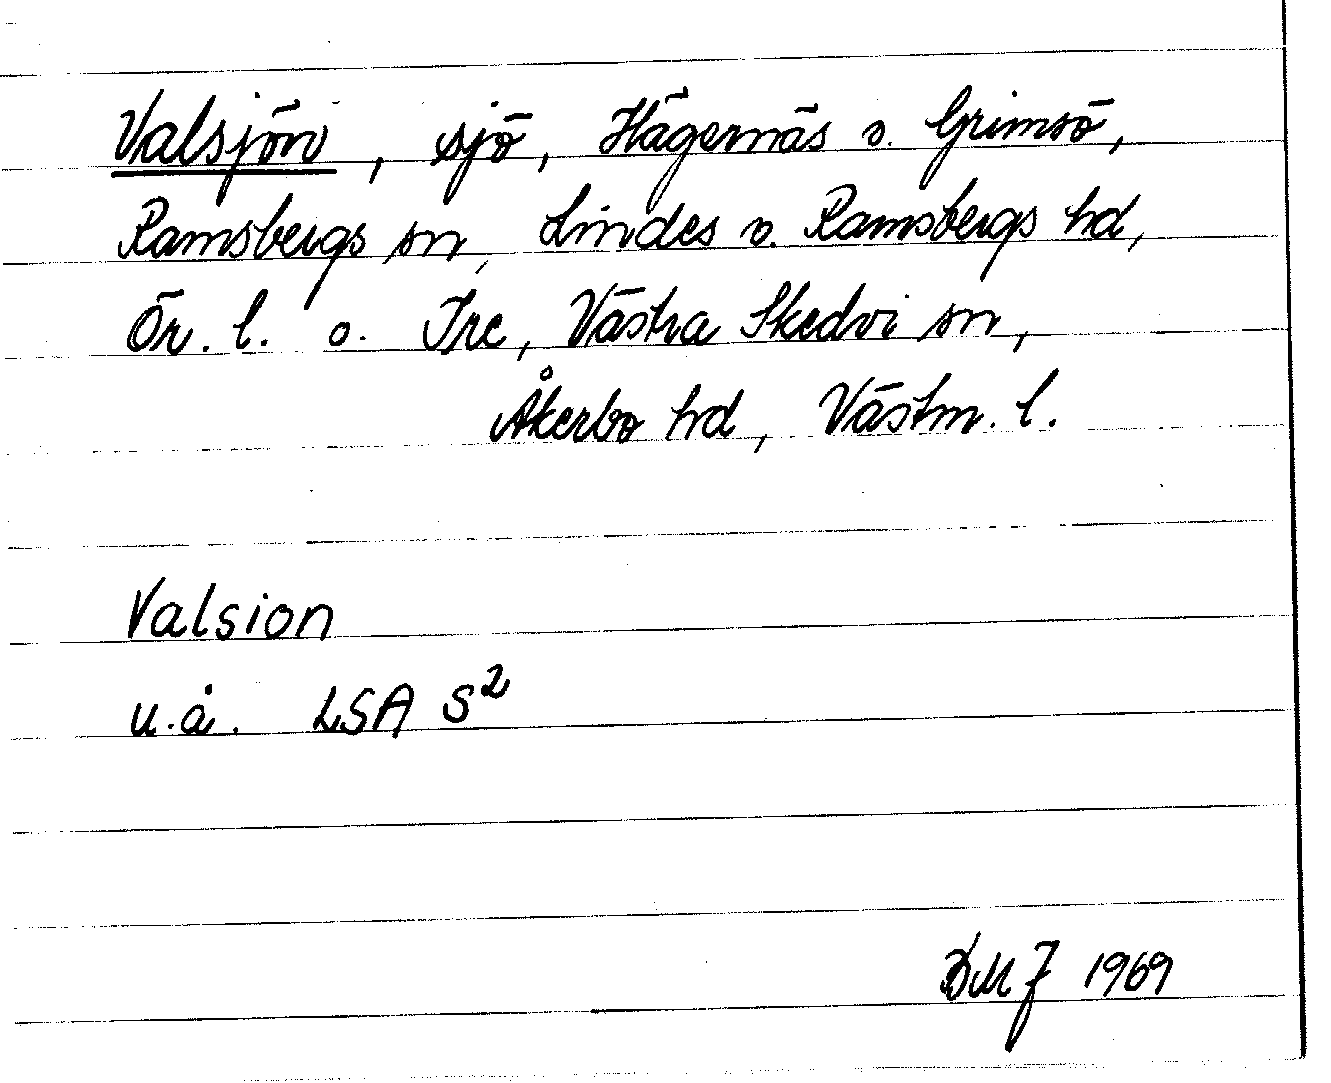 Valsjön, sjö, Hägernäs o. Grimsö,
Ramsbergs sn, Lindes o. Ramsbergs hd,
Ör. l. o. Tre, Västra Skedvi sn,
Åkerbo hd, Västm. l.
Valsion
u.å. LSA S²
1969